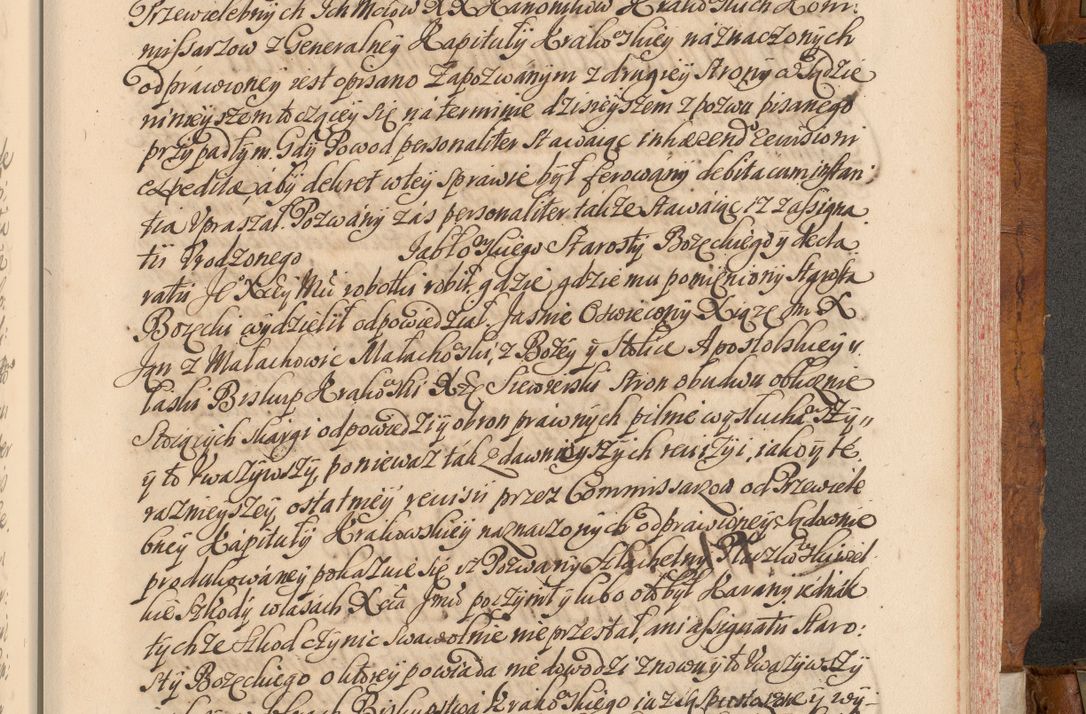 Przewielebnych Ich Mciow XX Kanonikow Krakowskich Kom:
missarzow z Generalney Kapituły Krakowskiey naznaczonych
odprawioney iest opisano Zapozwanym z drugiey strony a Sądzie
ninieyszem toczącey się na terminie dzisieyszem z pozwu pisanego
przypadłym. Gdy Powod personaliter stawaiąc inhaerendo remissioni
expeditae, aby dekret w tey sprawie był ferowany debita cum instan
tia Vpraszał. Pozwany zas personaliter takze stawaiąc iz z assigna
tii Vrodzonego Jabłonskiego Starosty Bozęckiego y decla
ratii Je Xcey Mci robotki robił, gdzie gdzie mu pomieniony Starosta
Bozecki wydzielił odpowiedział. Jasnie Oswiecony Xiąze Jm X
Jan z Małachowic Małachowski, z Bozey y Stolice Apostolskiey
łaski Biskup Krakowski Xże Siewierski stron obudwu oblicznie
stoiących skargi odpowiedzi y obron prawnych pilnie wysłuchawszy
y to Vwazywszy, poniewaz tak z dawnieyszych rewizyi, iako y te
raznieyszey ostatniey rewisii przez Commissarzow od Przewiele
bney Kapituły Krakowskiey naznaczonych odprawioney sądownie
produkowaney pokazuie się iz Pozwany Szlachetny wiel
kie szkody w lasach Xcia Jmci poczynił y lubo oto był karany iednak
tychze szkod czynic swawolnie nie przestał, ani assignatii Staro:
sty Bozęckiego o ktorey powiada nie dowodzi znowu y to Vwazywszy
Biskupstwa Krakowskiego iuz y wy-